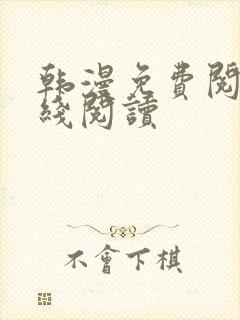 韩漫免費閱
綫閱讀
不會下棋